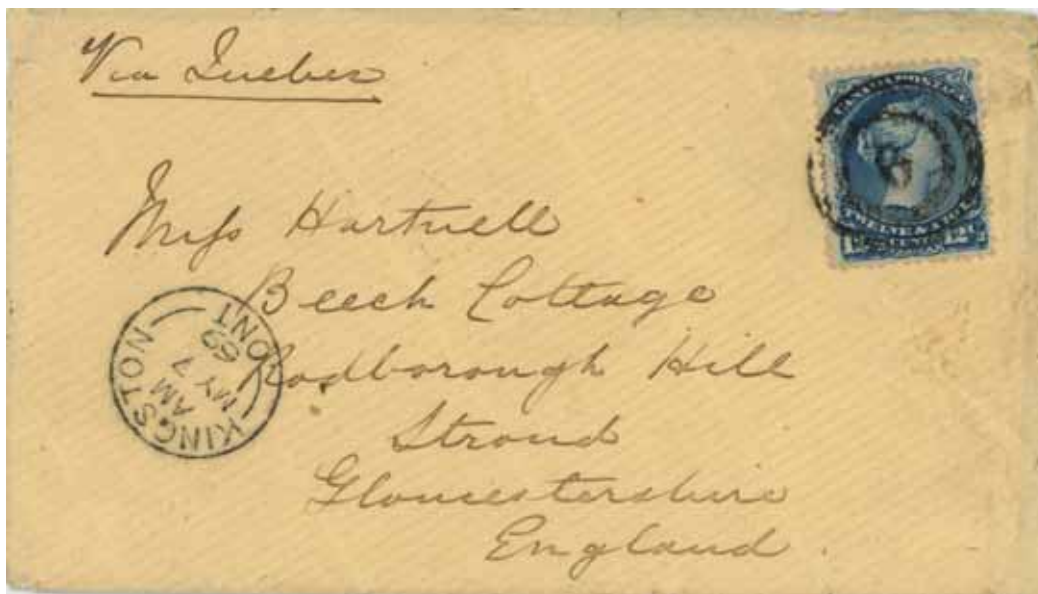 Via Quebec
CANADA POSTAGE
TWELVE & A HALF
12½ CENTS 12½
Miss Hartnell
Beech Cottage
Rodborough Hill
Stroud
Gloucestershire
England
KINGSTON
AM
MY 7
69
ONT